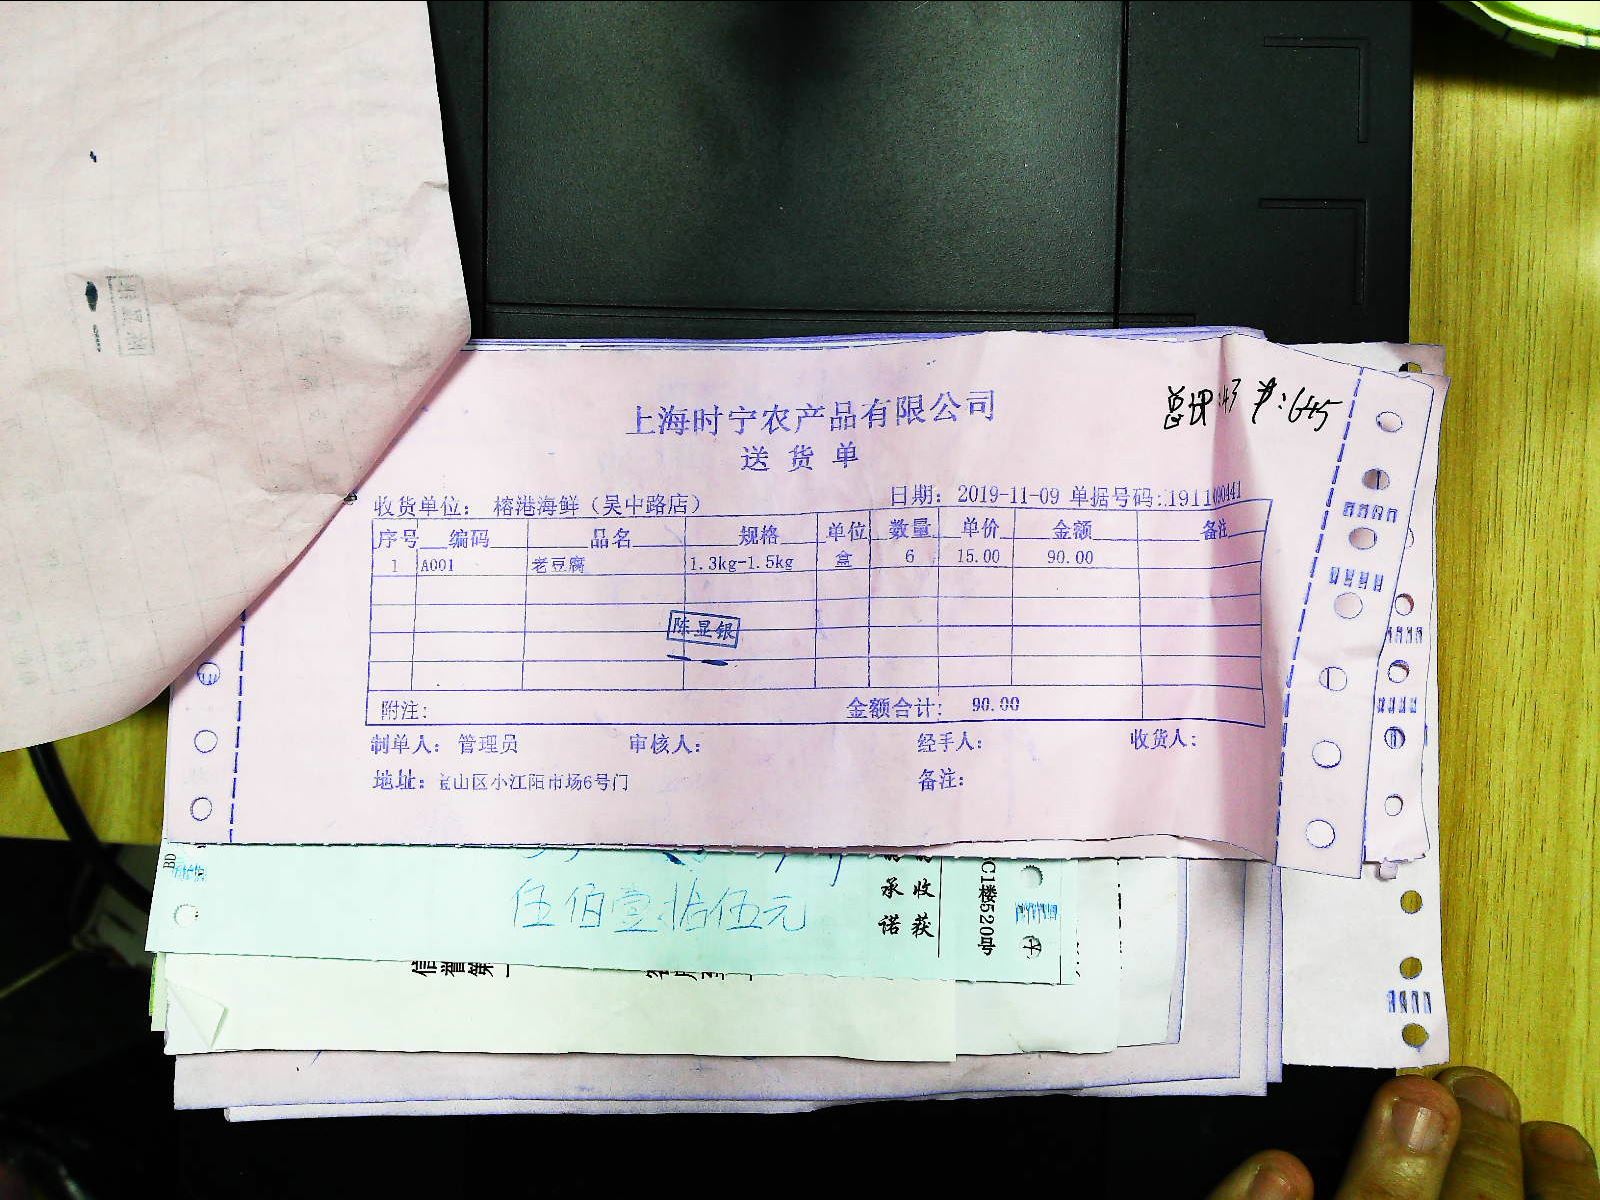 上海时宁农产品有限公司
送货单
收货单位： 榕港海鲜（吴中路店） 日期：2019-11-09 单据号码:
序号 编码 品名 规格 单位 数量 单价 金额 备注
1 A001 老豆腐 1.3kg-1.5kg 盒 6 15.00 90.00
陈显银
附注： 金额合计： 90.00
制单人：管理员 审核人： 经手人： 收货人：
地址：宝山区小江阳市场6号门 备注：
伍佰壹拾伍元
承诺
收获
C1楼520中
信誉第一